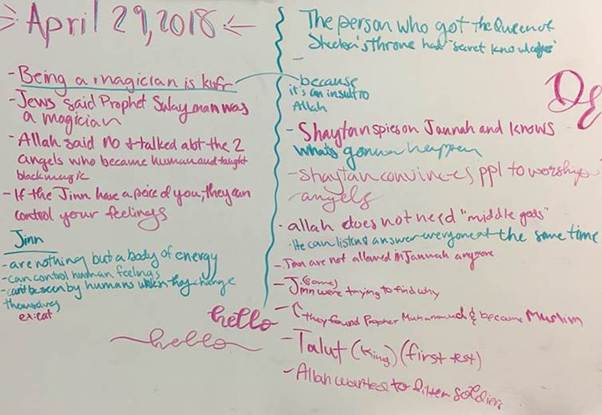 April 29, 2018
- Being a magician is kufr
- Jews said Prophet Sulayman was
a magician
- Allah said no & talked abt the 2
angels who became human and taught
black magic
- If the Jinn have a peice of you, they can
control your feelings
Jinn
- are nothing but a body of energy
- can control human feelings
- can't be seen by humans unless they change
themselves
ex: cat
hello
hello
The person who got the Queen of
Sheeba's throne had "secret knowledge"
- because
it's an insult to
Allah
- Shaytan spies on Jannah and knows
what's gonna happen
- shaytan convinces ppl to worship
angels
- allah does not need "middle gods"
- He can listen & answer everyone at the same time
- Jinn are not allowed in Jannah anymore
- Jinn (some) were trying to find why
- they found Prophet Muhammad & became muslim
- Talut (king) (first test)
- Allah wanted to filter soldiers